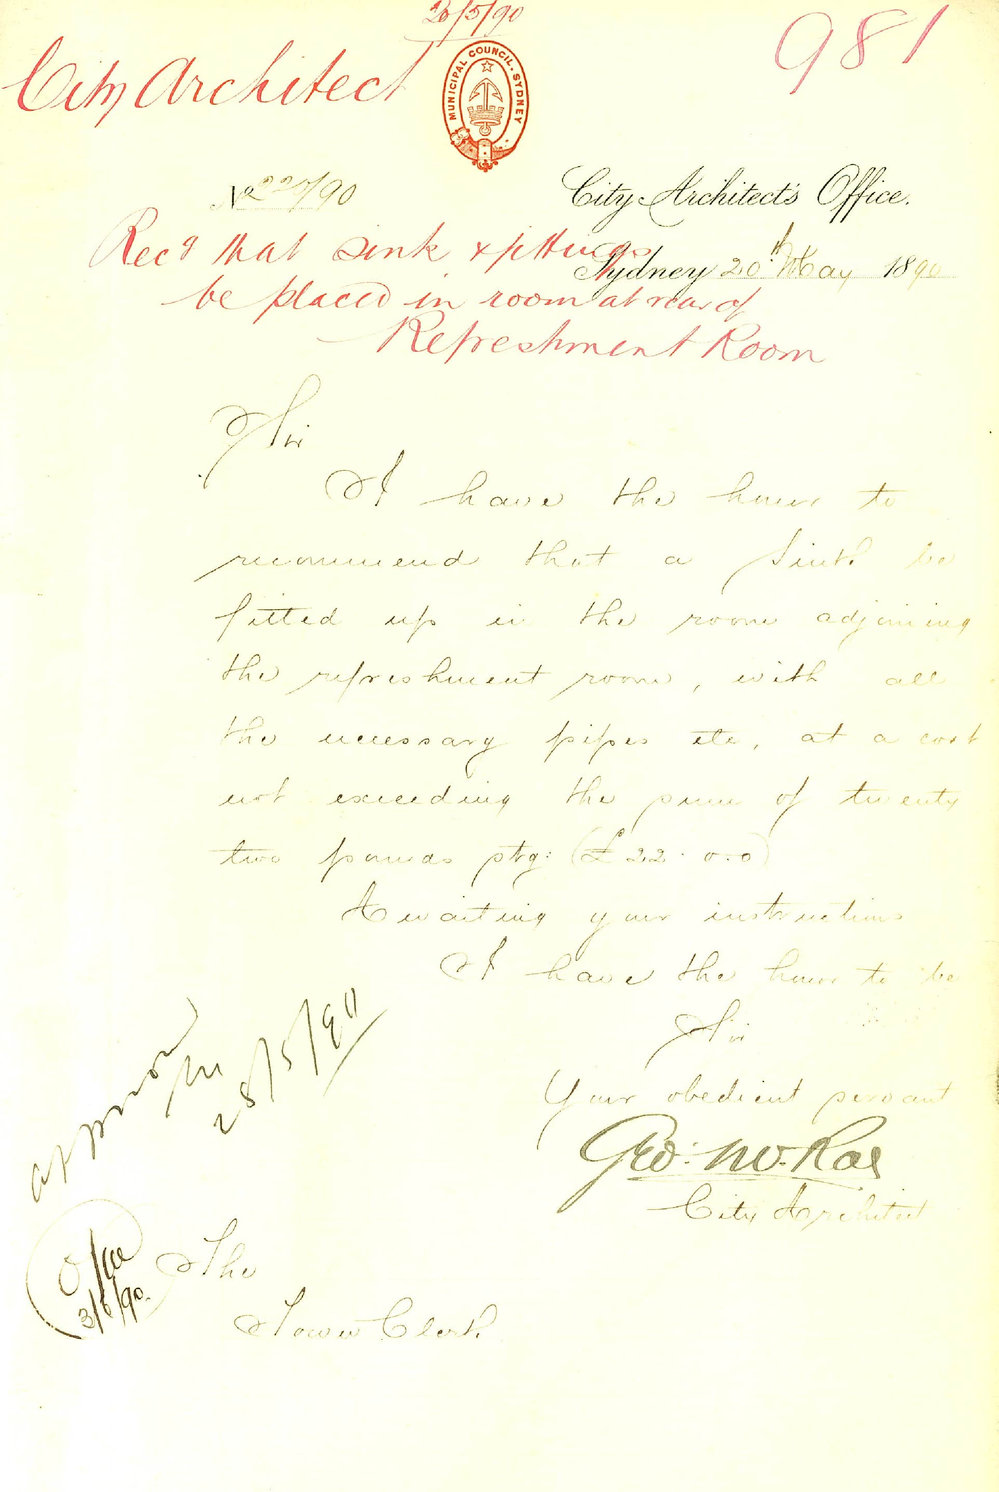 20/5/90
981
City Architect
MUNICIPAL COUNCIL. SYDNEY
No 227/90
City Architect's Office.
Sydney 20th May 1890
Recd that sink & fittings
be placed in room at rear of
Refreshment Room
Sir
I have the honor to
recommend that a Sink be
fitted up in the room adjoining
the refreshment room, with all
the necessary pipes etc, at a cost
not exceeding the sum of twenty
two pounds stg: (£22.0.0)
Awaiting your instructions
I have the honor to be
Sir
Your obedient servant
Geo: McRae
City Architect
approved
28/5/90
3/6/90.
The
Town Clerk